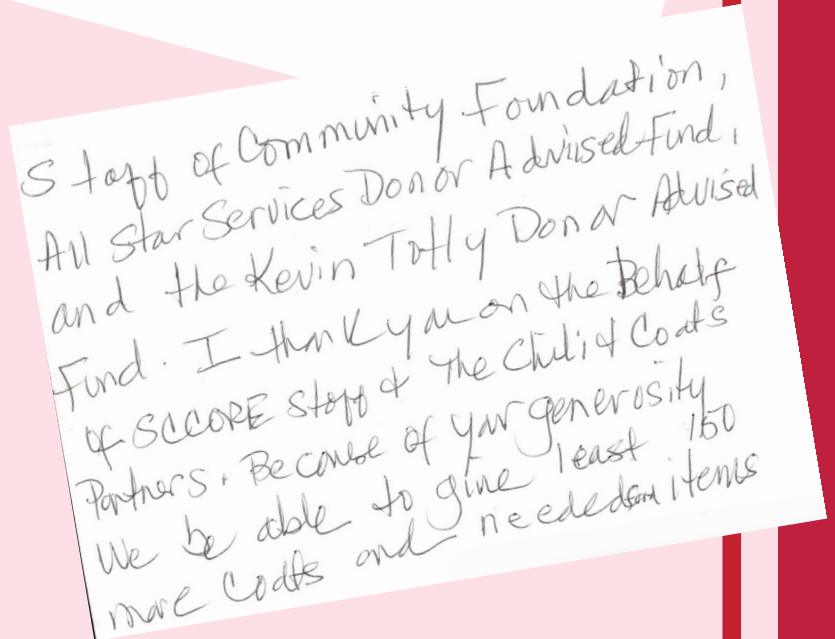 Staff of Community Foundation,
All Star Services Donor Advised Fund,
and the Kevin Totly Donor Advised
Fund. I thank you on the Behalf
of SCCORE Staff & The Chili & Coats
Partners. Because of your generosity
We be able to give least 150
more Coats and needed items